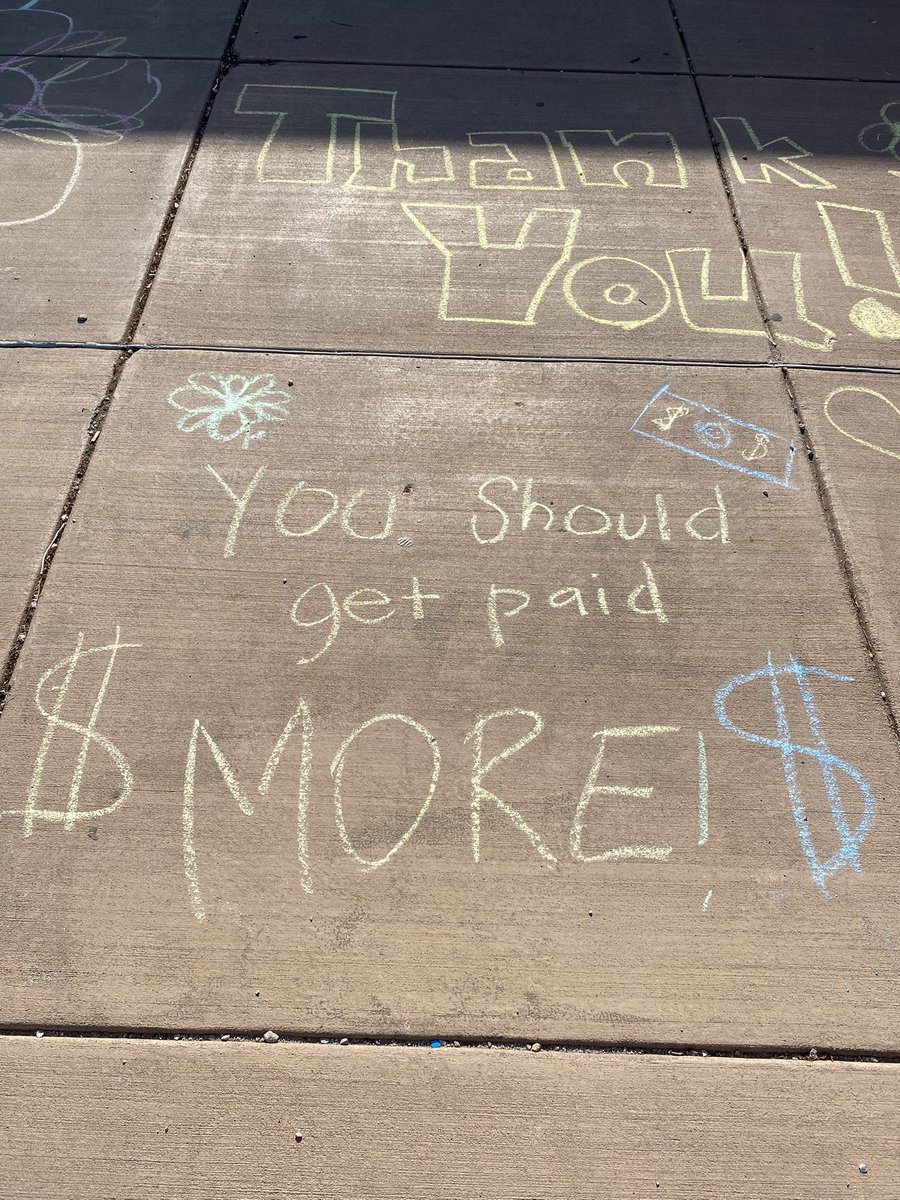 Thank
You!
$ $
You Should
get paid
$ MORE! $